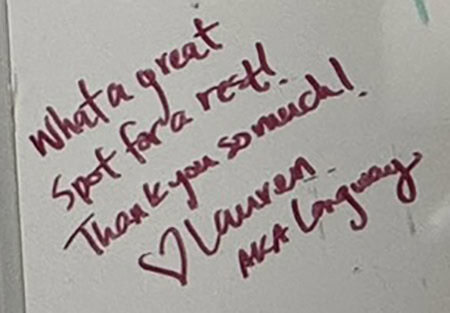 What a great
spot for a rest!
Thank you so much!
♡ Lauren
AKA Longway